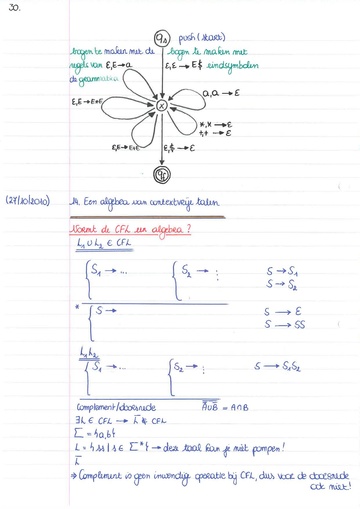 30.
q₀ push (start)
bogen te maken met de regels van de grammatica
bogen te maken met eindsymbolen
ε,ε → a
ε,ε → E$
a,a → ε
ε,ε → E+E
x
*,* → ε
+,+ → ε
ε,ε → E*E
ε,$ → ε
(27/10/2010)
14. Een algebra van contextvrije talen
Vormt de CFL een algebra?
L₁ ∪ L₂ ∈ CFL
{ S₁ → ... { S₂ → ⋮ S → S₁
S → S₂
* { S → S → ε
S → SS
L₁L₂
{ S₁ → ... { S₂ → ⋮ S → S₁S₂
Complement/doorsnede A̅∪B̅ = A∩B
∃L ∈ CFL → L̅ ∉ CFL
Σ = {a,b}
L = {ss | s ∈ Σ*} → deze taal kan je niet pompen!
L̅
⇒ Complement is geen inwendige operatie bij CFL, dus voor de doorsnede
ook niet!